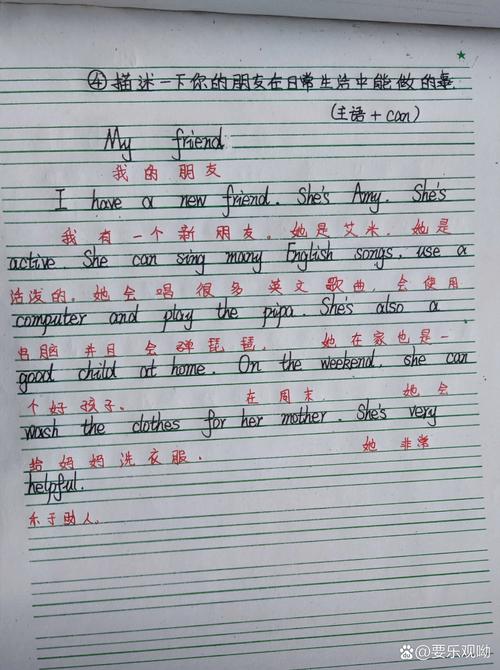 ④描述一下你的朋友在日常生活中能做的事
(主语+can)
My friend
我的朋友
I have a new friend. She's Amy. She's
我有一个新朋友。她是艾米。她是
active. She can sing many English songs, use a
活泼的。她会唱很多英文歌曲,会使用
computer and play the pipa. She's also a
电脑并且会弹琵琶。她在家也是一
good child at home. On the weekend, she can
个好孩子。在周末,她会
wash the clothes for her mother. She's very
给妈妈洗衣服。她非常
helpful.
乐于助人。
@要乐观呦